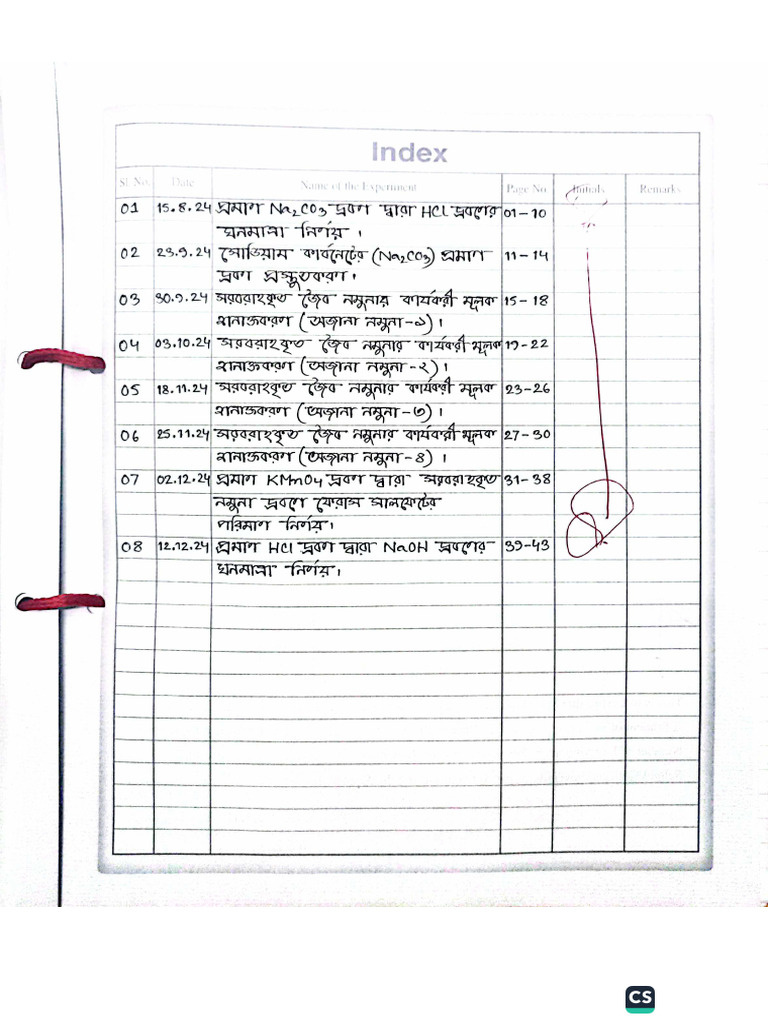 Index
Sl. No. Date Name of the Experiment Page No Initials Remarks
01 15.8.24 প্রমাণ Na₂CO₃ দ্রবণ দ্বারা HCl দ্রবণের 01-10
ঘনমাত্রা নির্ণয়।
02 23.9.24 সোডিয়াম কার্বনেটের (Na₂CO₃) প্রমাণ 11-14
দ্রবণ প্রস্তুতকরণ।
03 30.9.24 সরবরাহকৃত জৈব নমুনার কার্যকরী মূলক 15-18
শনাক্তকরণ (অজানা নমুনা-১)।
04 03.10.24 সরবরাহকৃত জৈব নমুনার কার্যকরী মূলক 19-22
শনাক্তকরণ (অজানা নমুনা-২)।
05 18.11.24 সরবরাহকৃত জৈব নমুনার কার্যকরী মূলক 23-26
শনাক্তকরণ (অজানা নমুনা-৩)।
06 25.11.24 সরবরাহকৃত জৈব নমুনার কার্যকরী মূলক 27-30
শনাক্তকরণ (অজানা নমুনা-৪)।
07 02.12.24 প্রমাণ KMnO₄ দ্রবণ দ্বারা সরবরাহকৃত 31-38
নমুনা দ্রবণে ফেরাস সালফেটের
পরিমাণ নির্ণয়।
08 12.12.24 প্রমাণ HCl দ্রবণ দ্বারা NaOH দ্রবণের 39-43
ঘনমাত্রা নির্ণয়।
CS